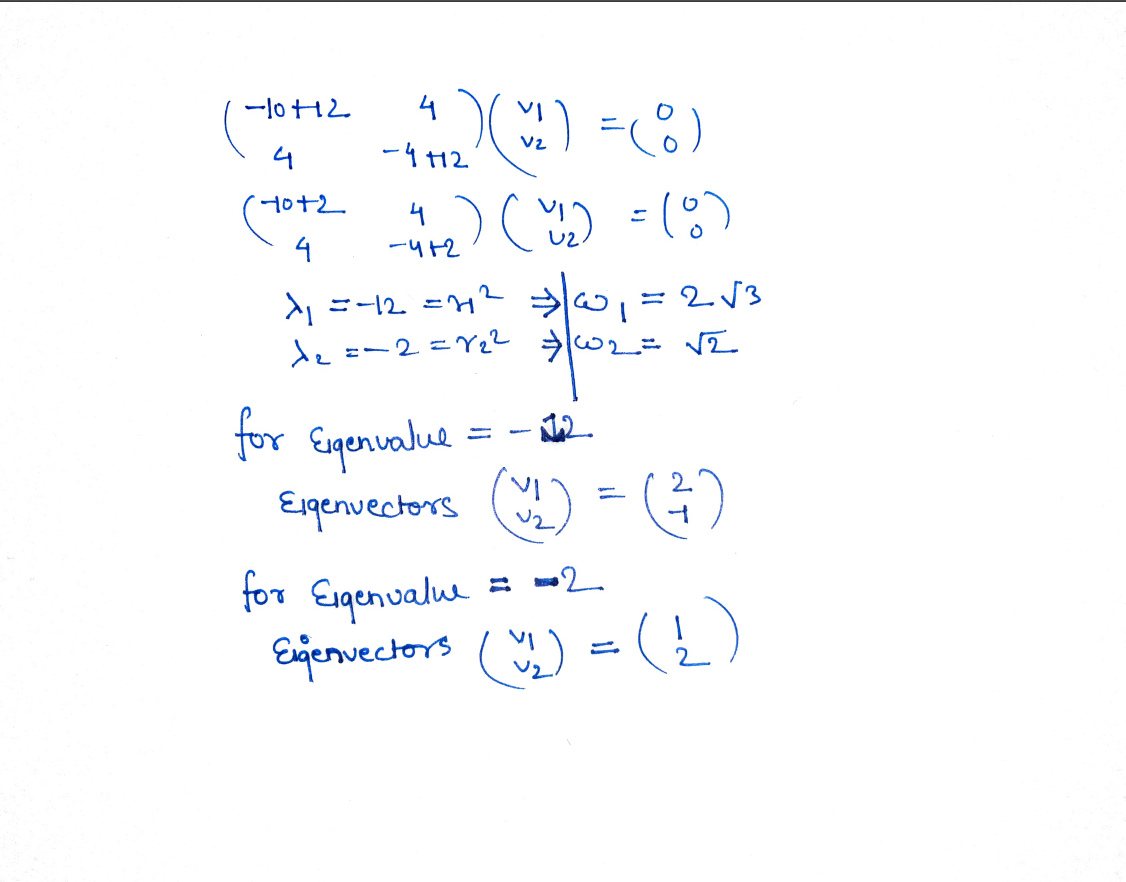 (-10+12 4) (v1) = (0)
(4 -4+12) (v2) (0)
(-10+2 4) (v1) = (0)
(4 -4+2) (v2) (0)
λ1 = -12 = r1² ⇒ | ω1 = 2√3
λ2 = -2 = r2² ⇒ | ω2 = √2
for Eigenvalue = -12
Eigenvectors (v1) = (2)
(v2) (-1)
for Eigenvalue = -2
Eigenvectors (v1) = (1)
(v2) (2)